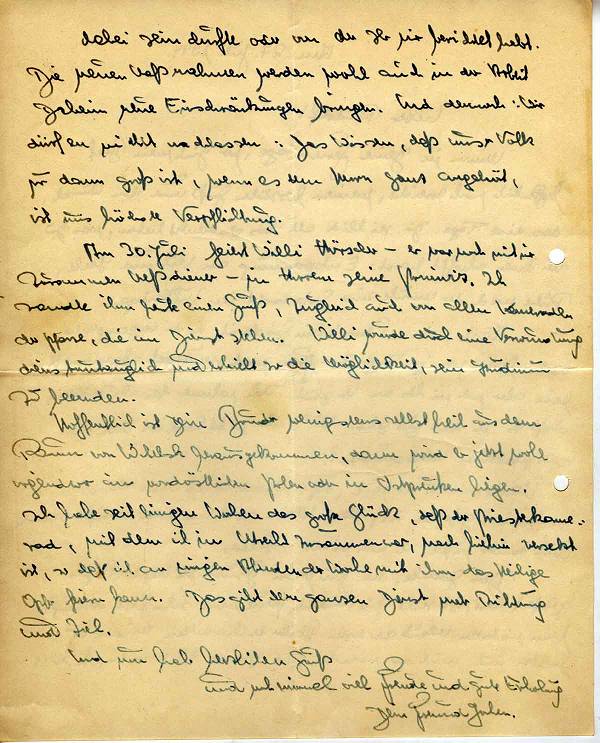 dabei sein durfte oder von der Ihr mir berichtet habt.
Die neuen Maßnahmen werden wohl auch in der Arbeit
daheim neue Einschränkungen bringen. Und dennoch: Wir
dürfen nicht nachlassen: Das Wissen, daß unser Volk
nur dann groß ist, wenn es dem Herrn ganz angehört,
ist uns höchste Verpflichtung.
Am 30. Juli feiert Willi – er war noch mit mir
zusammen Meßdiener – in seine Primiz. Ich
sandte ihm heute einen Gruß, zugleich auch von allen Kameraden
der Pfarre, die im Dienst stehen. Willi wurde durch eine Verwundung
dienstuntauglich und erhielt so die Möglichkeit, sein Studium
zu beenden.
Hoffentlich ist Dein Bruder wenigstens selbst heil aus dem
Raum von herausgekommen, dann wird er jetzt wohl
irgendwo im nordöstlichen Polen oder in Ostpreußen liegen.
Ich habe seit einigen Wochen das große Glück, daß der Priesterkame-
rad, mit dem ich in Utrecht zusammen war, nach hierhin versetzt
ist, so daß ich an einigen Abenden der Woche mit ihm das heilige
Opfer feiern kann. Das gibt dem ganzen Dienst mehr Richtung
und Ziel.
Und nun hab herzlichen Gruß
und noch einmal viel Freude und gute Erholung
Dein Freund